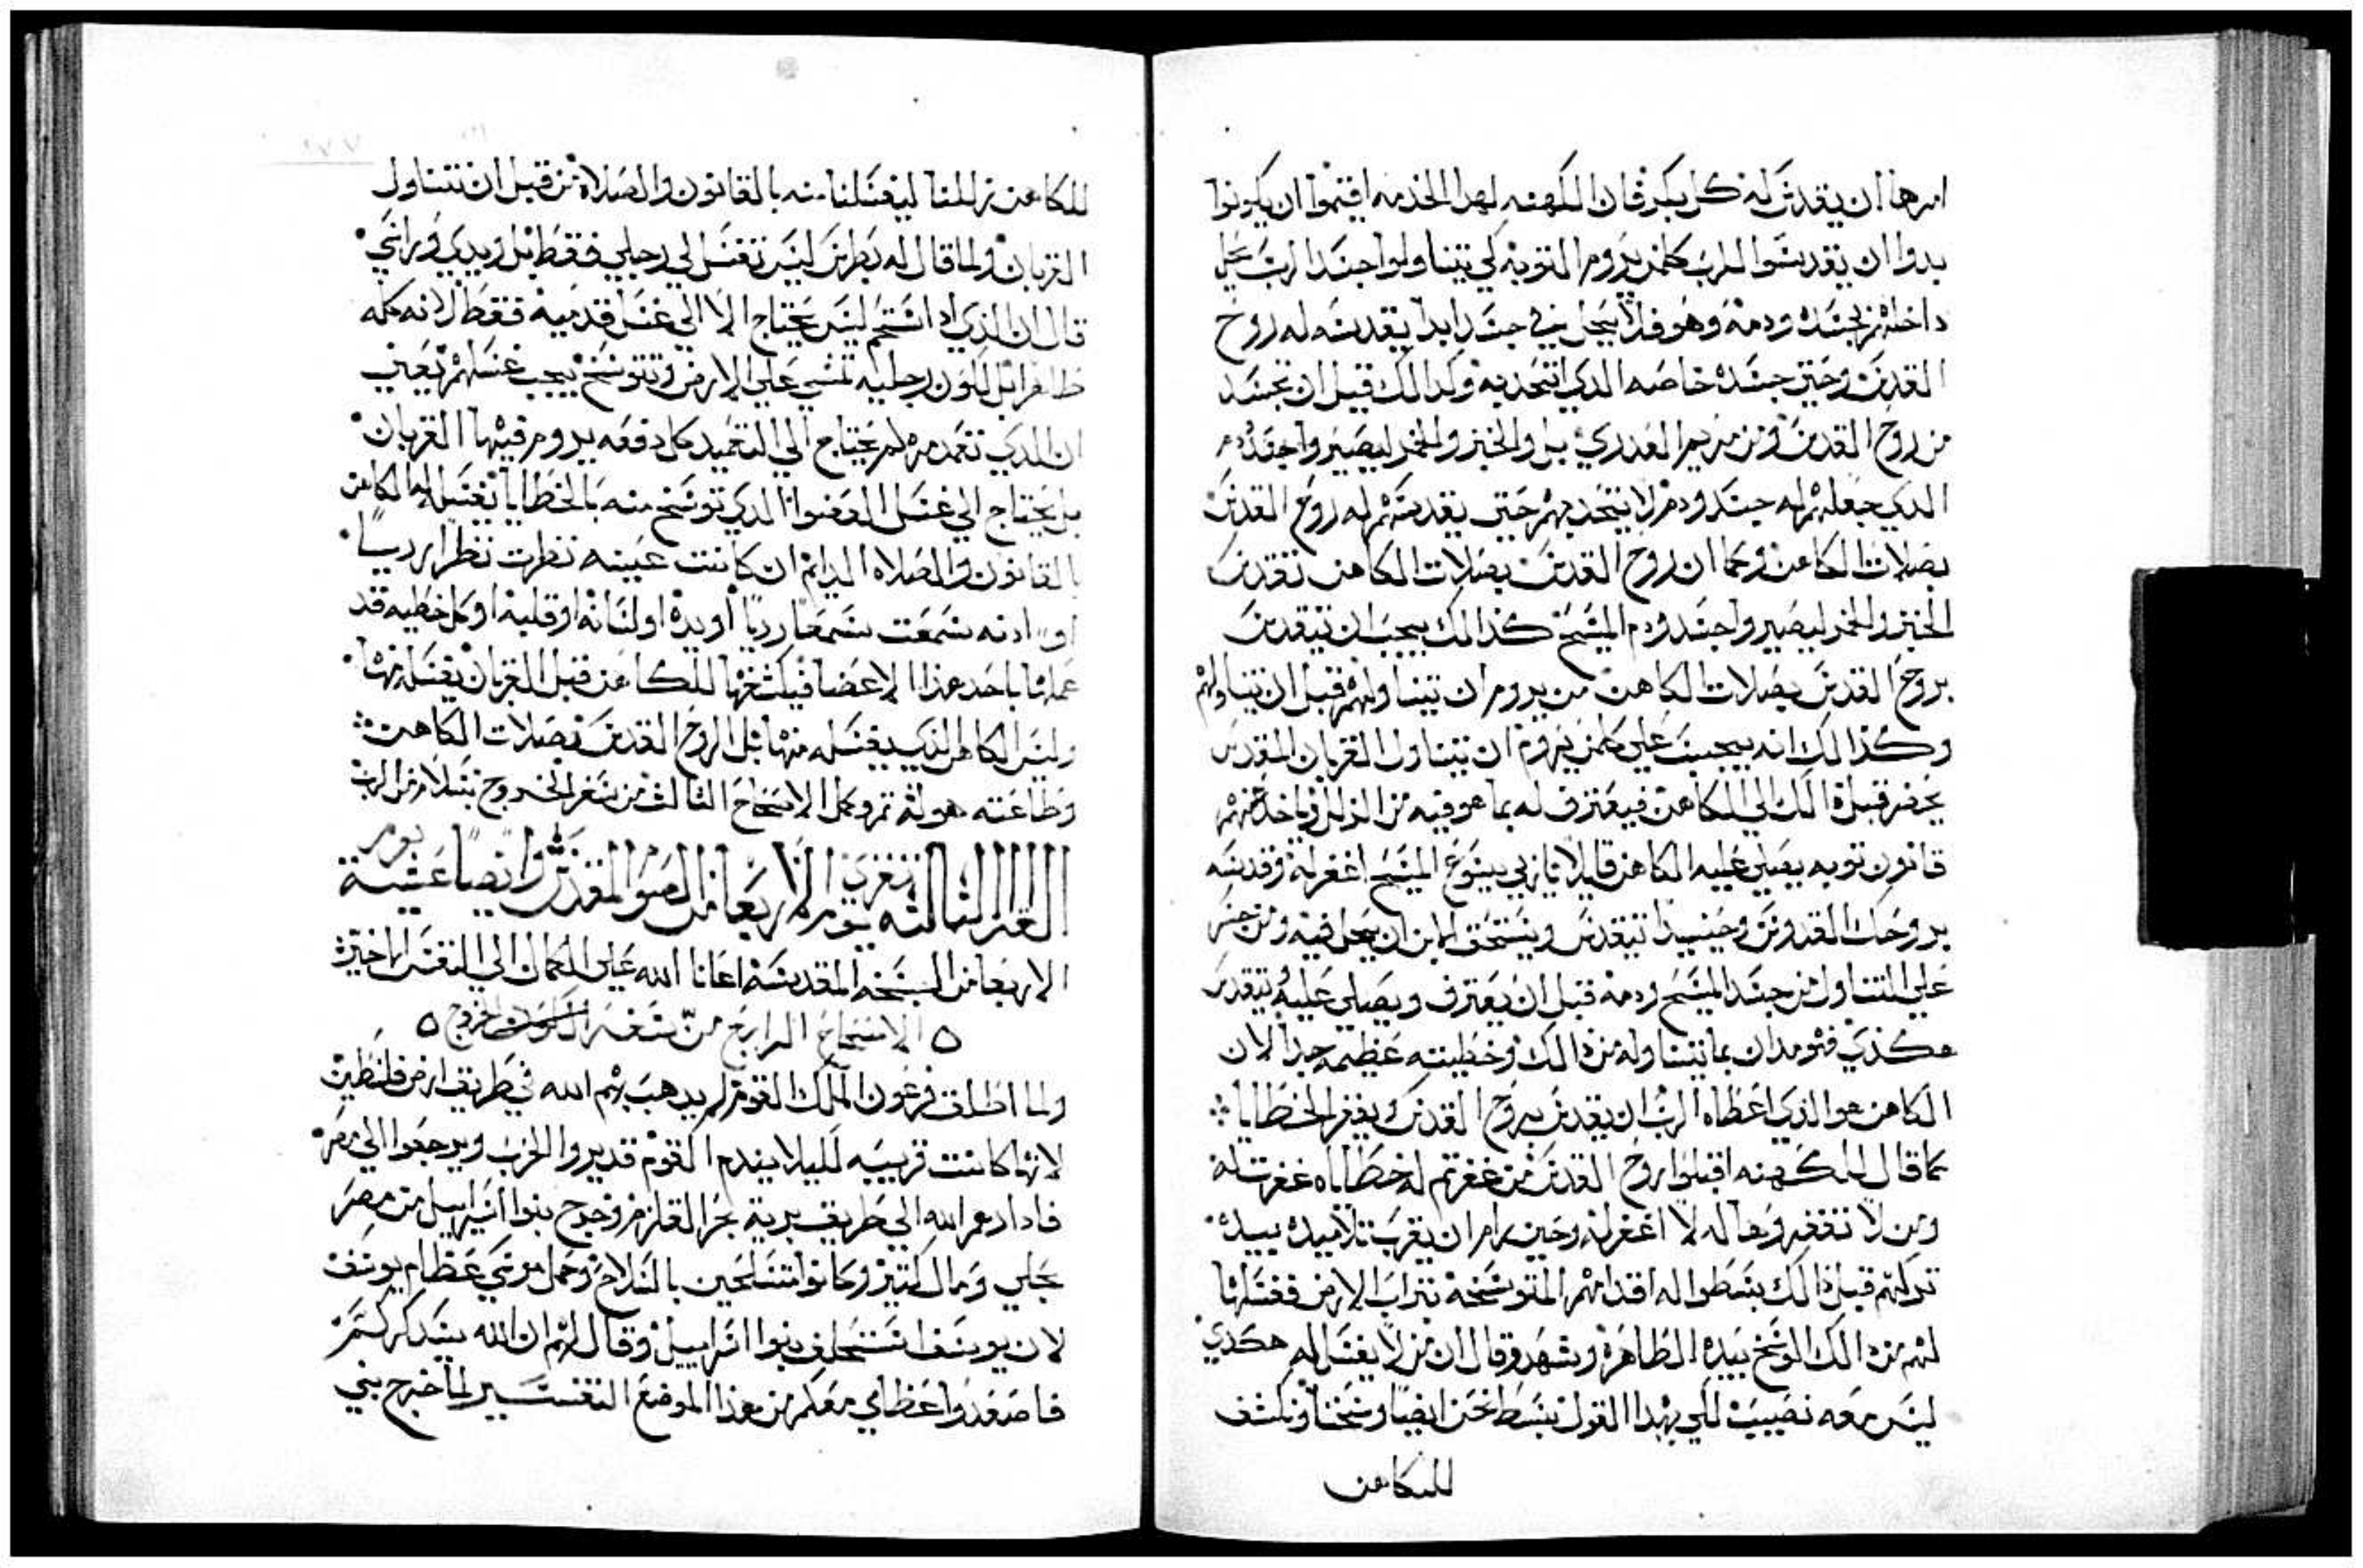 امرها ان يقدس له كل بكر فان الكهنه لهدا الخدمه اقيموا ان يكونوا
بدوا ان يقدسوا للرب كلمن يروم التوبه لكي يتناولوا جسد الرب يحل
داخلهم بجسده ودمه وهو فلا يحل في جسد ابدا يقدسه له روح
القدس وحتي جسده خاصه الدي اتحد به وكدالك قبل ان تجسد
من روح القدس ومن مريم العدري بل والخبز والخمر ليصيروا جسده
الدي جعلهم له جسد ودم لا يتحد بهم حتي يقدسهم له روح القدس
بصلات الكاهن وكما ان روح القدس بصلات الكاهن تقدس
الخبز والخمر ليصيروا جسد ودم المسيح كذالك يجب ان تتقدس
بروح القدس بصلات الكاهن من يروم ان يتناولهم قبل ان يتناولهم
وكذالك انه يجب علي كلمن يروم ان يتناول القربان المقدس
يحضر قبل ذالك الي الكاهن فيعترف له بما هو فيه من الزلل وياخذ منهم
قانون توبه يصلي عليه الكاهن قايلا ياربي يسوع المسيح اغفر له وقدسه
بروحك القدوس وحينيدا تتقدس ويستحق لابن ان يحل فيه ومن جسر
علي التناول من جسد المسيح ودمه قبل ان يعترف ويصلي عليه تتقدس
هكذي فهو مدان بما تتناوله من ذالك وخطيته عظيمه جدا لان
الكاهن هو الذي اعطاه الرب ان يقدس بروح القدس ويغفر الخطايا
كما قال للكهنه اقبلوا روح القدس من غفرتم له خطاياه غفرت له
ومن لا تغفروها له لا اغفر له وحين رام ان يقرب تلاميده بيده
تركهم قبل ذالك بسطوا له اقدامهم المتوسخه بتراب الارض فغسلها
لهم من ذالك الوسخ بيده الطاهره وشهد وقال ان من لا يغسل له هكذي
ليس معه نصيب لكي بهدا القول نبسط نحن ايضا وسخنا ونكشف
للكاهن
للكاهن زللنا ليغسلنا منه بالقانون والصلاه من قبل ان نتناول
القربان ولما قال له بطرس ليس تغسل لي رجلي فقط بل ويدي وراسي
قال ان الذي استحم ليس يحتاج الا الي غسل قدميه فقط لانه كله
طاهرا بل لكون رجليه تمشي علي الارض وتتوسخ يجب غسلهم يعني
ان الدي تعمد مره لم يحتاج الي التعميد كل دفعه يروم فيها القربان
بل يحتاج الي غسل العضوا الدي توسخ منه بالخطايا تغسل له الكاهن
بالقانون والصلاه الدايم ان كانت عينه نظرت نظرا رديا
او ادنه سمعت سمعا رديا او يده او لسانه او قلبه او كل خطيه قد
عملها باحد هذا الاعضا فيكشفها للكاهن قبل القربان يغسله منها
وليس الكاهن الذي يغسله منها بل الروح القدس بصلات الكاهن
وطاعته هو له تم وكمل الاصحاح الثالث من سفر الخروج بسلام من الرب
القراه الثالثه تقري يوم الاربعا من الصوم المقدس وايضا عشية يوم
الاربعا من البسخه المقدسه اعانا الله علي الكمال الي النفس الاخيره
الاصحاح الرابع من سفر الخروج
ولما اطلق فرعون الملك القوم لم يدهب بهم الله في طريق ارض فلسطين
لانها كانت قريبيه لليلا يندم القوم قد يروا الحرب ويرجعوا الي مصر
فادارهم الله الي طريق برية بحر القلزم وخرج بنوا اسراييل من مصر
بحلي ومال كتير وكانوا متسلحين بالسلاح وحمل موسي عظام يوسف
لان يوسف استحلف بنوا اسراييل وقال لهم ان الله سيدكركم
فاصعدوا عظامي معكم من هذا الموضع التفسير لما خرج بني